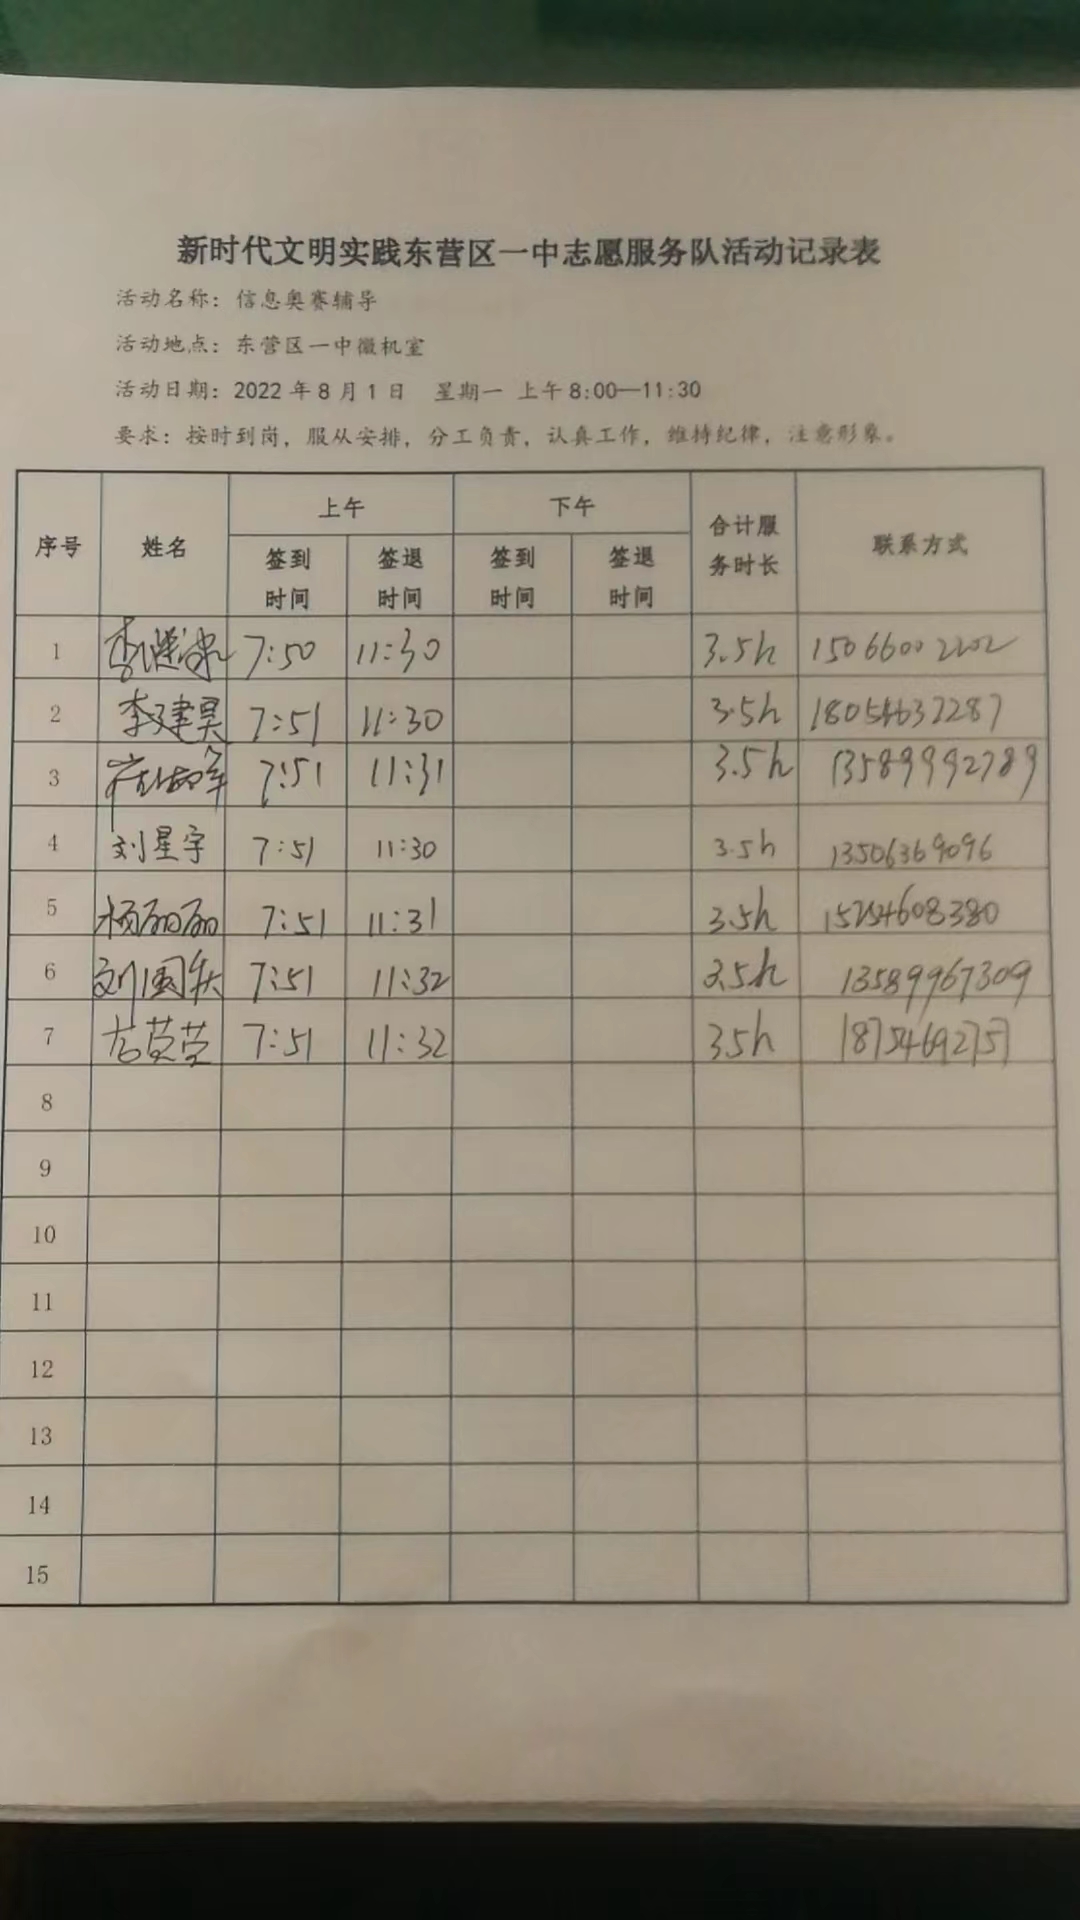 新时代文明实践东营区一中志愿服务队活动记录表
活动名称：信息奥赛辅导
活动地点：东营区一中微机室
活动日期：2022年8月1日 星期一 上午8:00—11:30
要求：按时到岗，服从安排，分工负责，认真工作，维持纪律，注意形象。
序号 姓名 上午 下午 合计服务时长 联系方式
签到时间 签退时间 签到时间 签退时间
1 7:50 11:30 3.5h 15066002202
2 李建昊 7:51 11:30 3.5h 18054632287
3 7:51 11:31 3.5h 13589992789
4 刘星宇 7:51 11:30 3.5h 13506369096
5 杨丽丽 7:51 11:31 3.5h 15254608380
6 7:51 11:32 3.5h 13589967309
7 7:51 11:32 3.5h 18754692757
8
9
10
11
12
13
14
15